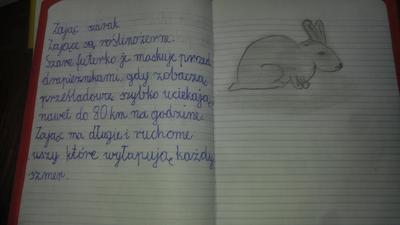 Zając szarak
Zające są roślinożerne.
Szare futerko je maskuje przed
drapieżnikami, gdy zobaczą
prześladowcę szybko uciekają,
nawet do 80 km na godzinę.
Zając ma długie i ruchome
uszy które wyłapują każdy
szmer.